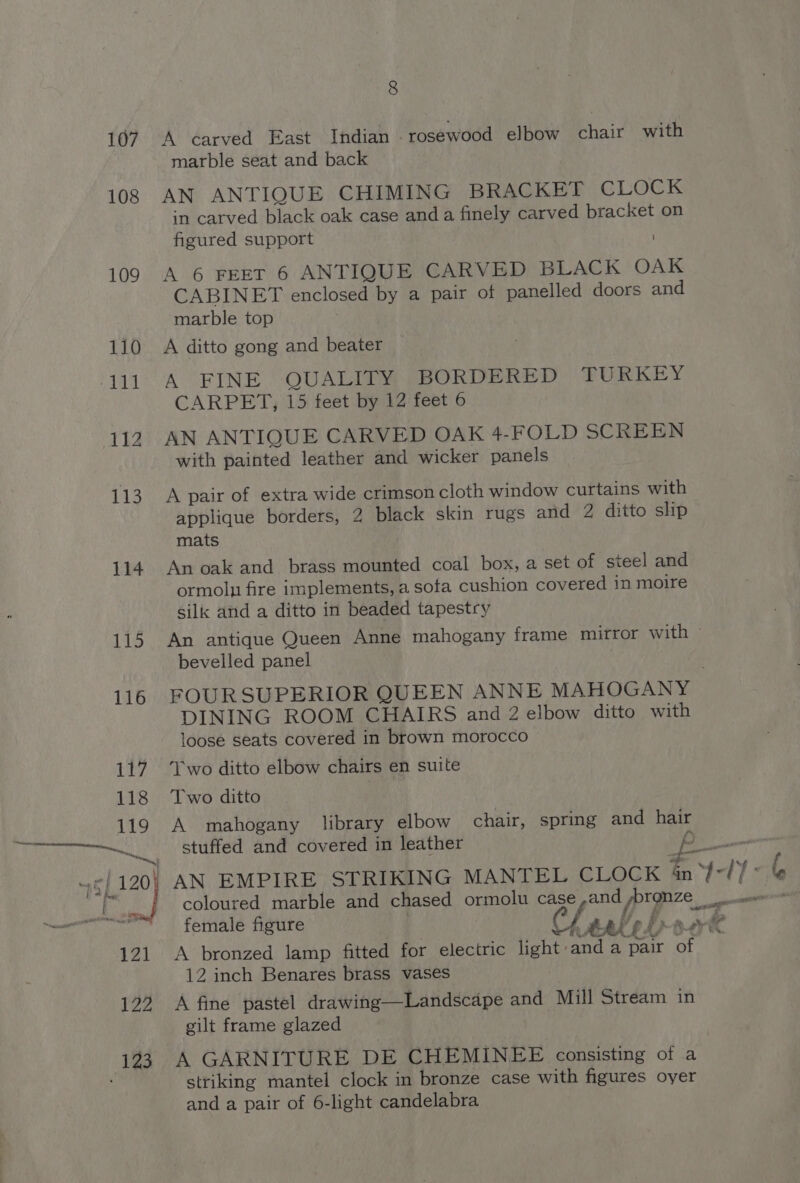 8
107 A carved East Indian rosewood elbow chair with
marble seat and back
108 AN ANTIQUE CHIMING BRACKET CLOCK
in carved black oak case and a finely carved bracket on
figured support
109 A 6 FEET 6 ANTIQUE CARVED BLACK OAK
CABINET enclosed by a pair of panelled doors and
marble top
110 A ditto gong and beater
111 A FINE QUALITY BORDERED TURKEY
CARPET, 15 feet by 12 feet 6
112 AN ANTIQUE CARVED OAK 4-FOLD SCREEN
with painted leather and wicker panels
113 A pair of extra wide crimson cloth window curtains with
applique borders, 2 black skin rugs and 2 ditto slip
mats
114 An oak and brass mounted coal box, a set of steel and
ormoln fire implements, a sofa cushion covered in moire
silk and a ditto in beaded tapestry
115 An antique Queen Anne mahogany frame mirror with
bevelled panel
116 FOUR SUPERIOR QUEEN ANNE MAHOGANY
DINING ROOM CHAIRS and 2 elbow ditto with
loose seats covered in brown morocco
117 Two ditto elbow chairs en suite
118 Two ditto
119 A mahogany library elbow chair, spring and hair
stuffed and covered in leather
120 AN EMPIRE STRIKING MANTEL CLOCK in
coloured marble and chased ormolu case and bronze
female figure
121 A bronzed lamp fitted for electric light and a pair of
12 inch Benares brass vases
122 A fine pastel drawing—Landscape and Mill Stream in
gilt frame glazed
123 A GARNITURE DE CHEMINEE consisting of a
striking mantel clock in bronze case with figures over
and a pair of 6-light candelabra